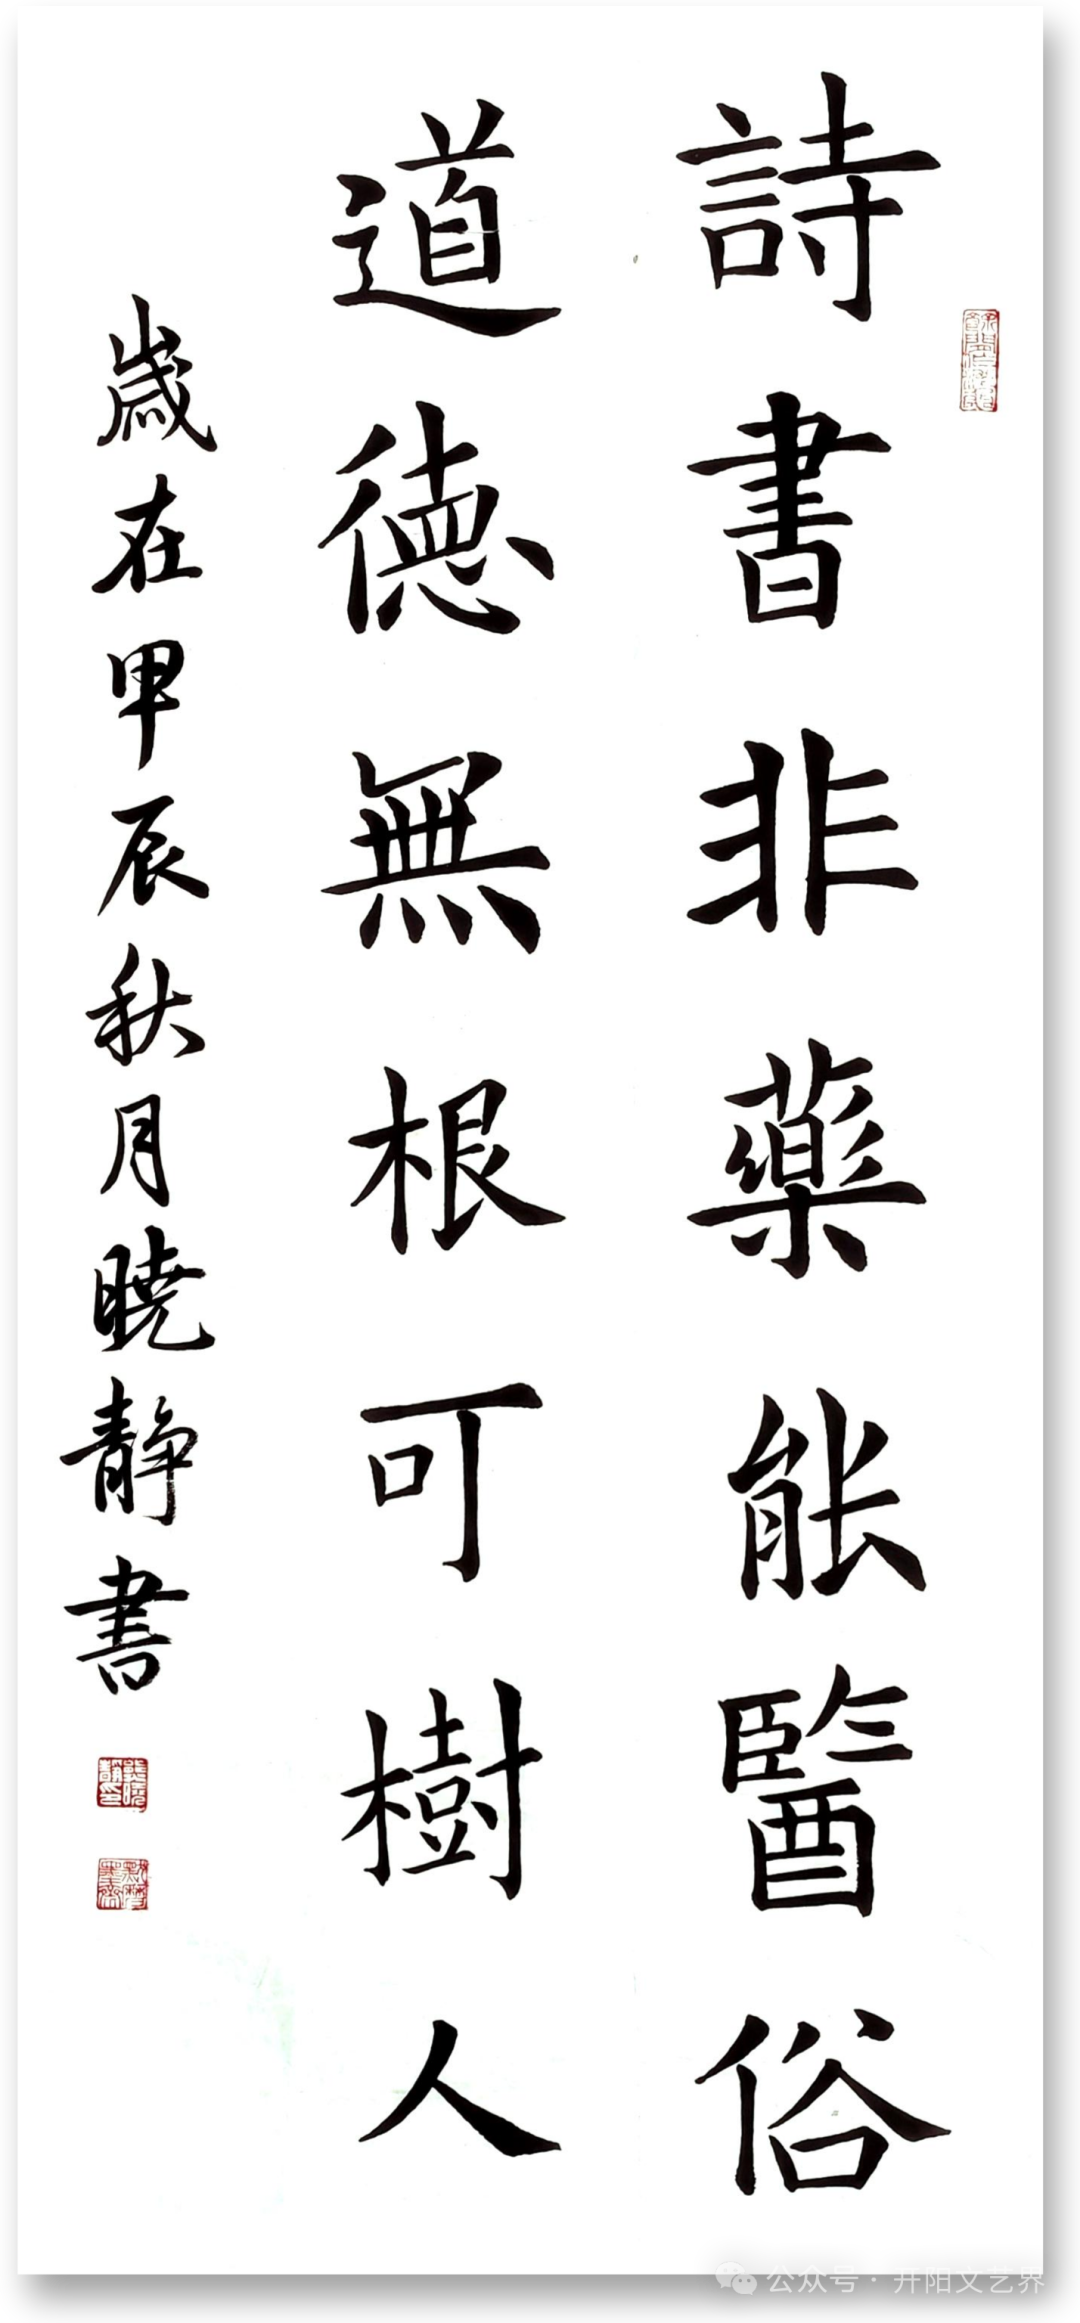 詩書非藥能醫俗
道德無根可樹人
歲在甲辰秋月曉静書
公众号·开阳文艺界